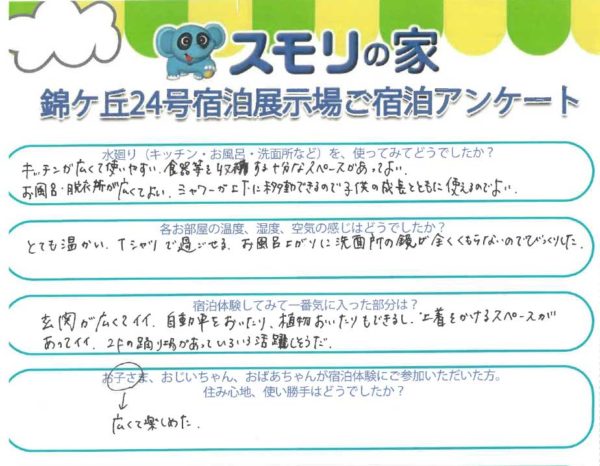 スモリの家
錦ケ丘24号宿泊展示場ご宿泊アンケート
水廻り（キッチン・お風呂・洗面所など）を、使ってみてどうでしたか？
キッチンが広くて使いやすい。食器等を収納する十分なスペースがあってよい。
お風呂・脱衣所が広くてよい。シャワーが上下に移動できるので子供の成長とともに使えるのでよい。
各お部屋の温度、湿度、空気の感じはどうでしたか？
とても温かい。Tシャツで過ごせる。お風呂上がりに洗面所の鏡が全くくもらないのでびっくりした。
宿泊体験してみて一番気に入った部分は？
玄関が広くてイイ。自動車をおいたり、植物おいたりもできるし、上着をかけるスペースが
あってイイ。2Fの踊り場があっていろいろ活躍しそうだ。
お子さま、おじいちゃん、おばあちゃんが宿泊体験にご参加いただいた方。
住み心地、使い勝手はどうでしたか？
広くて楽しめた。